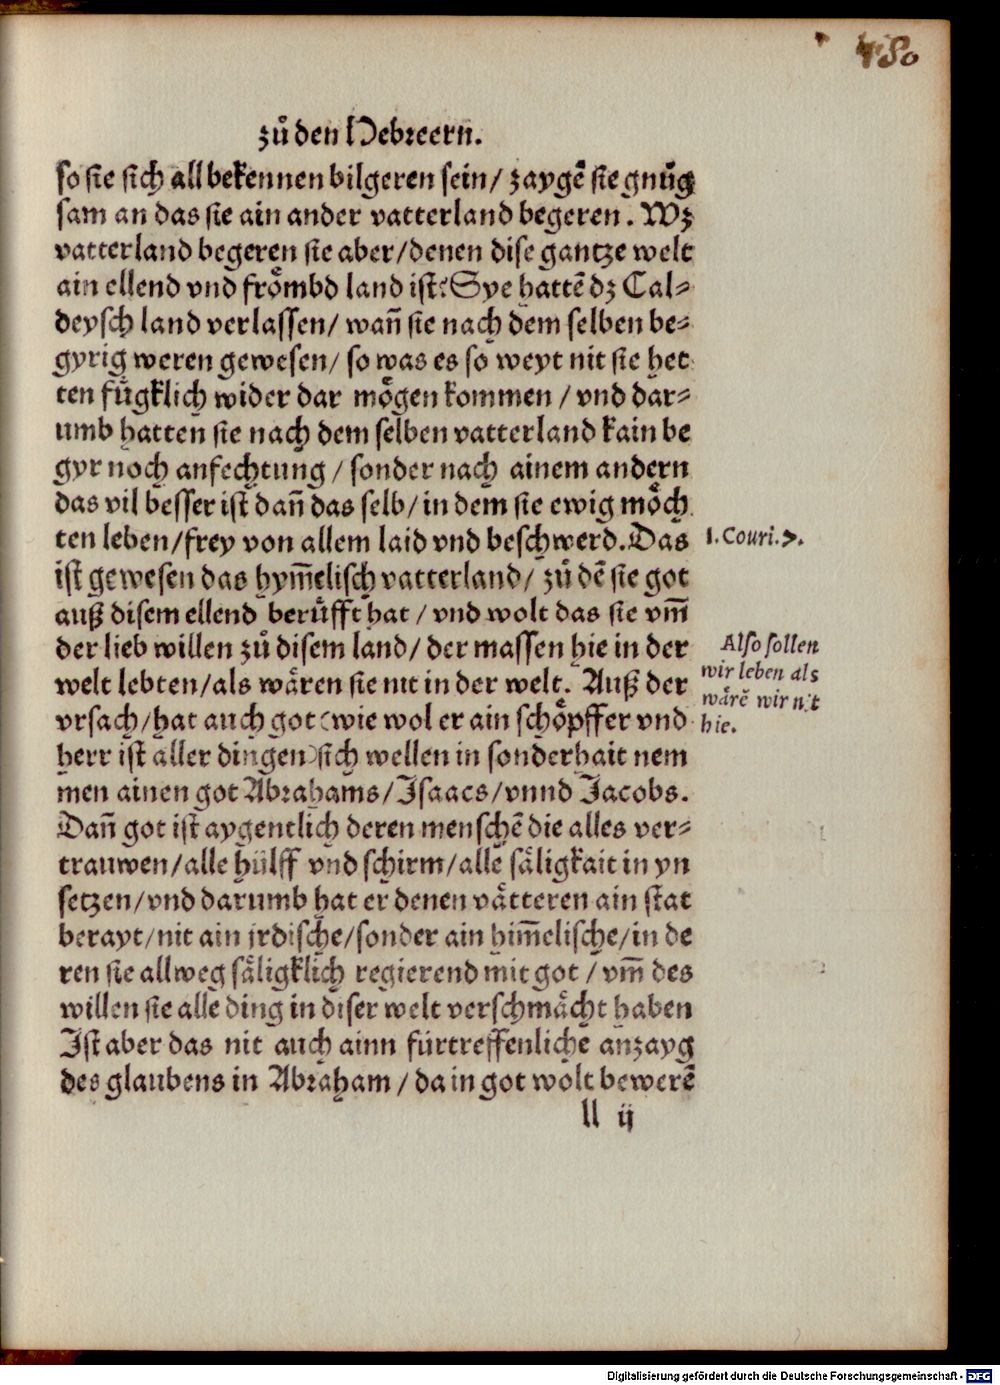 480
zů den Hebreern.
so sie sich all bekennen bilgeren sein/ zaygẽ sie gnůg
sam an das sie ain ander vatterland begeren. Wz
vatterland begeren sie aber/denen dise gantze welt
ain ellend vnd froͤmbd land ist? Sye hattẽ dz Cal⸗
deysch land verlassen/ wañ sie nach dem selben be⸗
gyrig weren gewesen/ so was es so weyt nit sie het
ten fuͤgklich wider dar moͤgen kommen / vnd dar⸗
umb hatten sie nach dem selben vatterland kain be
gyr noch anfechtung / sonder nach ainem andern
das vil besser ist dañ das selb/ in dem sie ewig moͤch
ten leben/frey von allem laid vnd beschwerd. Das
ist gewesen das hym̃elisch vatterland/ zů dẽ sie got
auß disem ellend beruͤfft hat / vnd wolt das sie vm̃
der lieb willen zů disem land/ der massen hie in der
welt lebten/als waͤren sie nit in der welt. Auß der
vrsach/hat auch got (wie wol er ain schoͤpffer vnd
herr ist aller dingen) sich wellen in sonderhait nem
men ainen got Abrahams/Isaacs/vnnd Jacobs.
Dañ got ist aygentlich deren menschẽ die alles ver⸗
trauwen/alle hülff vnd schirm/alle saͤligkait in yn
setzen/vnd darumb hat er denen vaͤtteren ain stat
berayt/nit ain irdische/sonder ain him̃elische/in de
ren sie allweg saͤligklich regierend mit got / vm̃ des
willen sie alle ding in diser welt verschmaͤcht haben
Ist aber das nit auch ainn fürtreffenliche anzayg
des glaubens in Abraham / da in got wolt bewerẽ
ll ij
1. Couri. 7.
Also sollen
wir leben als
waͤrẽ wir nit
hie.
Digitalisierung gefördert durch die Deutsche Forschungsgemeinschaft - DFG